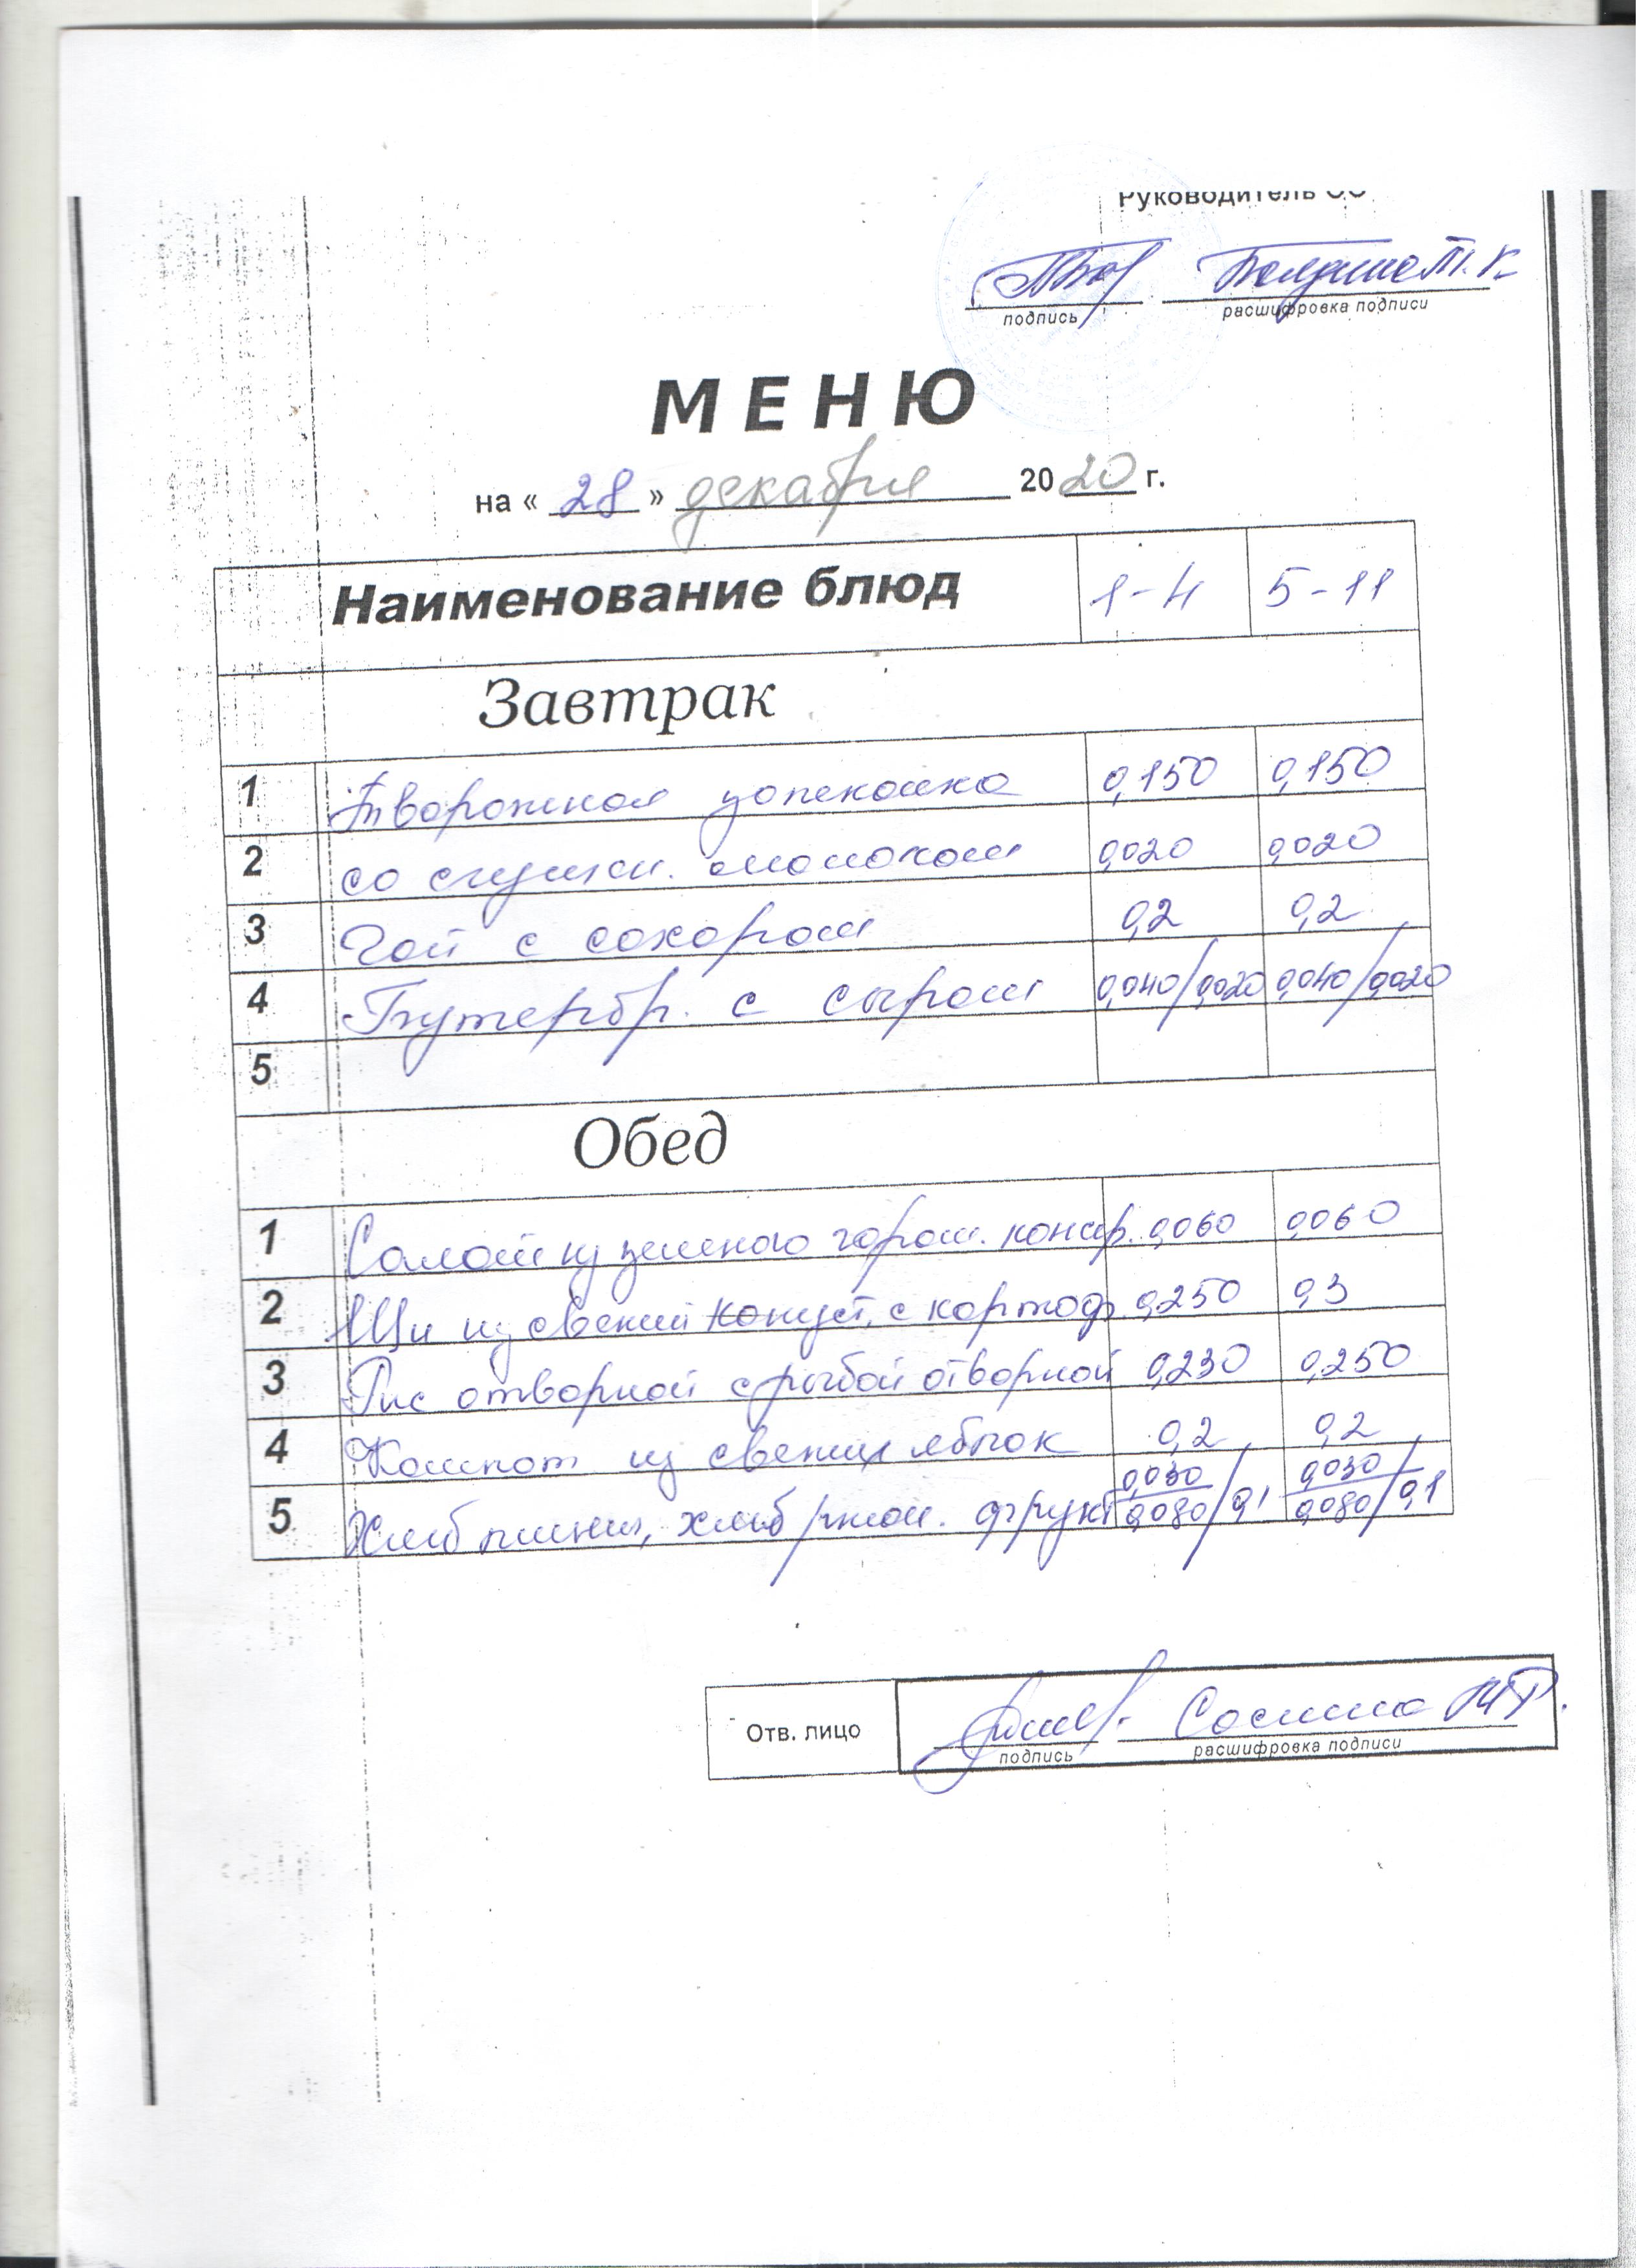 Руководитель ОО
подпись расшифровка подписи
МЕНЮ
на « 28 » декабря 2020 г.
Наименование блюд 1-4 5-11
Завтрак
1 Творожная запеканка 0,150 0,150
2 со сгущен. молоком 0,020 0,020
3 Чай с сахаром 0,2 0,2
4 Бутербр. с сыром 0,040/0,020 0,040/0,020
5
Обед
1 Салат из зеленого горош. консер. 0,060 0,060
2 Щи из свежей капуст. с картоф. 0,250 0,3
3 Рис отварной с рыбой отварной 0,230 0,250
4 Компот из свежих яблок 0,2 0,2
5 Хлеб пшенич, хлеб ржан. фрукт 0,030/0,080/0,1 0,030/0,080/0,1
Отв. лицо
подпись расшифровка подписи